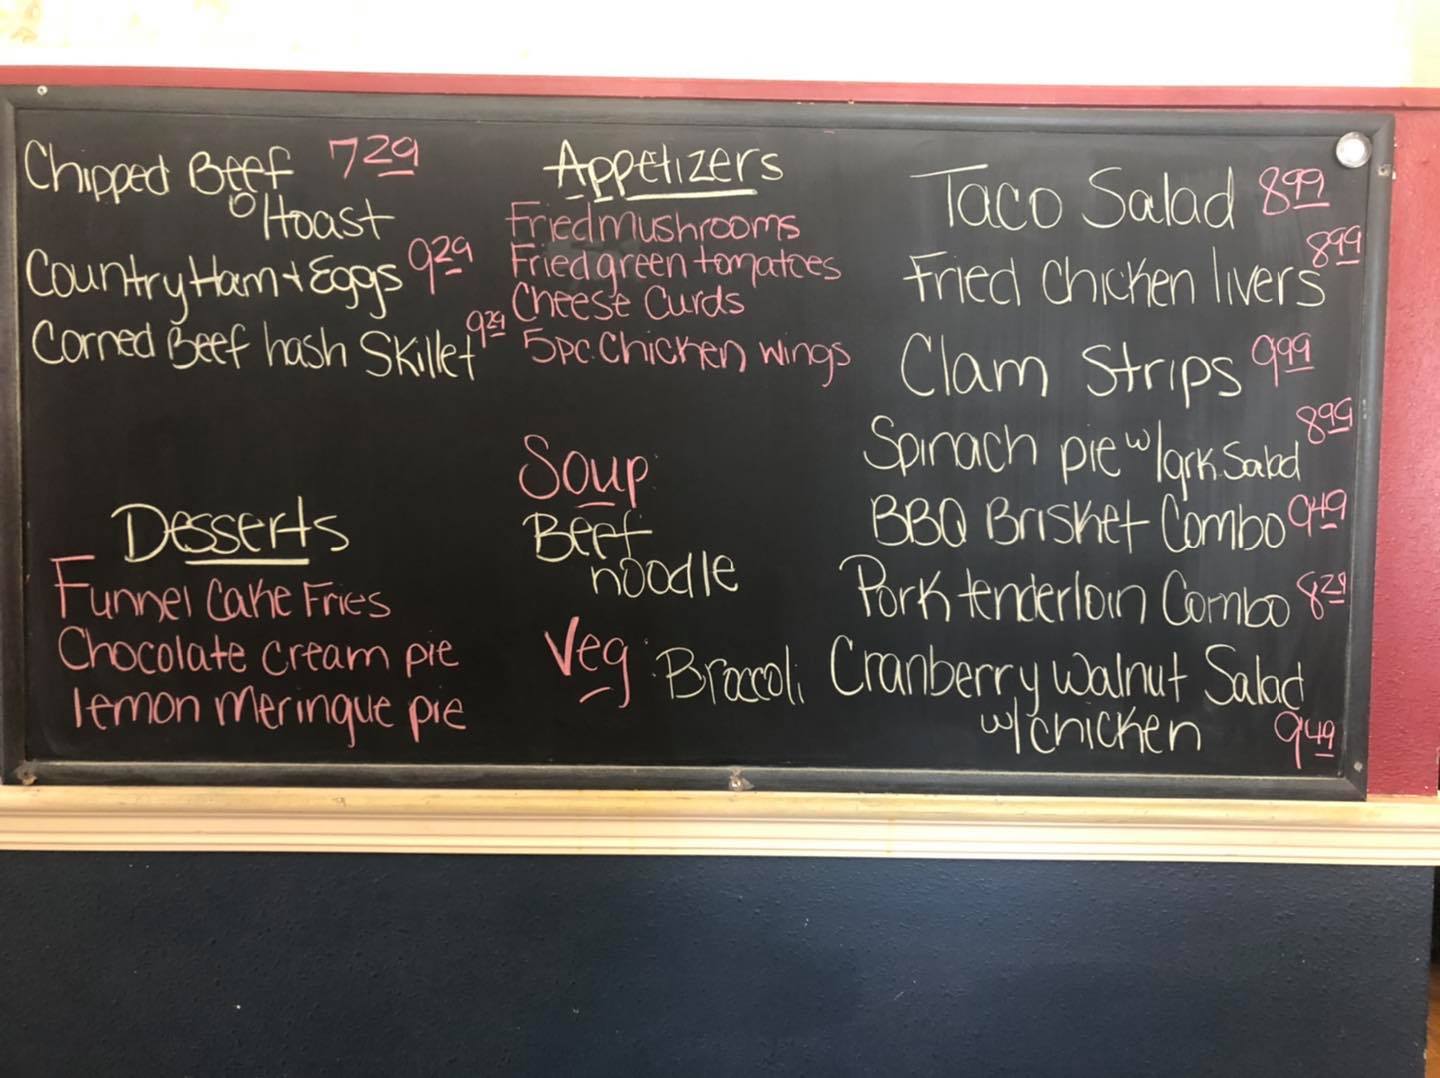 Chipped Beef 7 29
o/toast
Country Ham + Eggs 9 29
Corned Beef hash Skillet 9 29
Desserts
Funnel Cake Fries
Chocolate cream pie
lemon meringue pie
Appetizers
Fried mushrooms
Fried green tomatoes
Cheese Curds
5pc. Chicken wings
Soup
Beef
noodle
Veg Broccoli
Taco Salad 8 99
Fried chicken livers 8 99
Clam Strips 9 99
Spinach pie w/grk. Salad 8 99
BBQ Brisket Combo 9 49
Pork tenderloin Combo 8 29
Cranberry walnut Salad
w/chicken 9 49